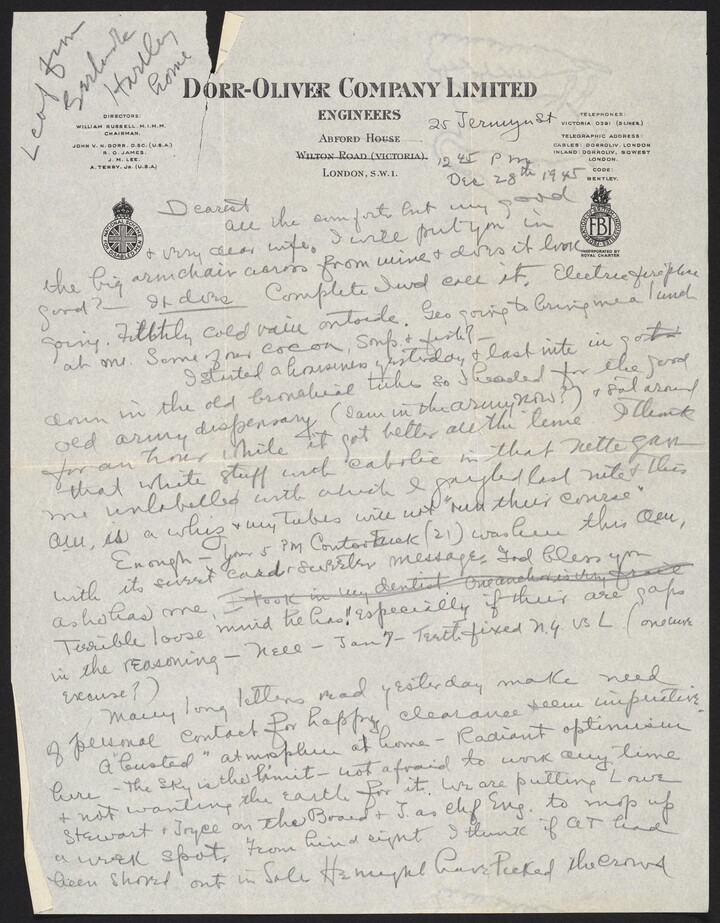 Leaf from
Gertrude
Hartley
home
DORR-OLIVER COMPANY LIMITED
ENGINEERS
ABFORD HOUSE
WILTON ROAD (VICTORIA).
LONDON, S.W.1.
DIRECTORS:
WILLIAM RUSSELL, M.I.H.M.
CHAIRMAN.
JOHN V. N. DORR, D.SC. (U.S.A.)
R. O. JAMES.
J. M. LEE.
A. TERRY, JR. (U.S.A.)
TELEPHONES:
VICTORIA 0391 (3 LINES.)
TELEGRAPHIC ADDRESS:
CABLES: DORROLIV, LONDON
INLAND: DORROLIV, SOWEST
LONDON.
CODE:
BENTLEY.
25 Jermyn St
12 45 P m
Dec 28th 1945
FBI
INCORPORATED BY
ROYAL CHARTER
Dearest
all the comforts but my good
& very dear wife. I will put you in
the big armchair across from mine & does it look
good? — It does Complete I wd call it. Electric fireplace
going. Filthily cold outside. Geo going to bring me a lunch
at one. Some of your cocoa, soup & fish? —
I started a business yesterday & last nite in
down in the old bronchial tubes so I headed for the good
old army dispensary (I am in the army now?) & sat around
for an hour while it got better all the time I think
that white stuff with cabolic in that
me unlabelled with which I gargled last nite & this
am, is a whiz & my tubes will not "run their course"
Enough — Your 5 PM (21) was here this am,
with its sweet card & sweeter message. God bless you
as he has me. I took in my dentist One anchor is very
Terrible loose mind he has! especially if their are gaps
in the reasoning — Nell — Jan 7 — Teeth fixed N.Y. (one
excuse?)
Many long letters read yesterday make need
of personal contact for happy clearance seem imperative
A "busted" atmosphere at home — Radiant optimism
here — The sky is the limit — not afraid to work any time
& not wanting the earth for it. We are putting Lowe
Stewart & Joyce on the Board & J. as chf Eng. to mop up
a weak spot. From hind sight I think if AT had
been shoved out in Sale He might have picked the crowd